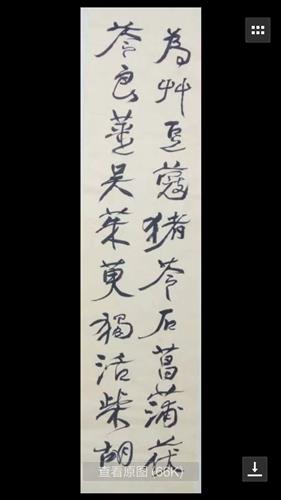 為艸豆蔻猪苓石菖蒲茯
苓良薑吴茱萸獨活柴胡
查看原图 (66K)